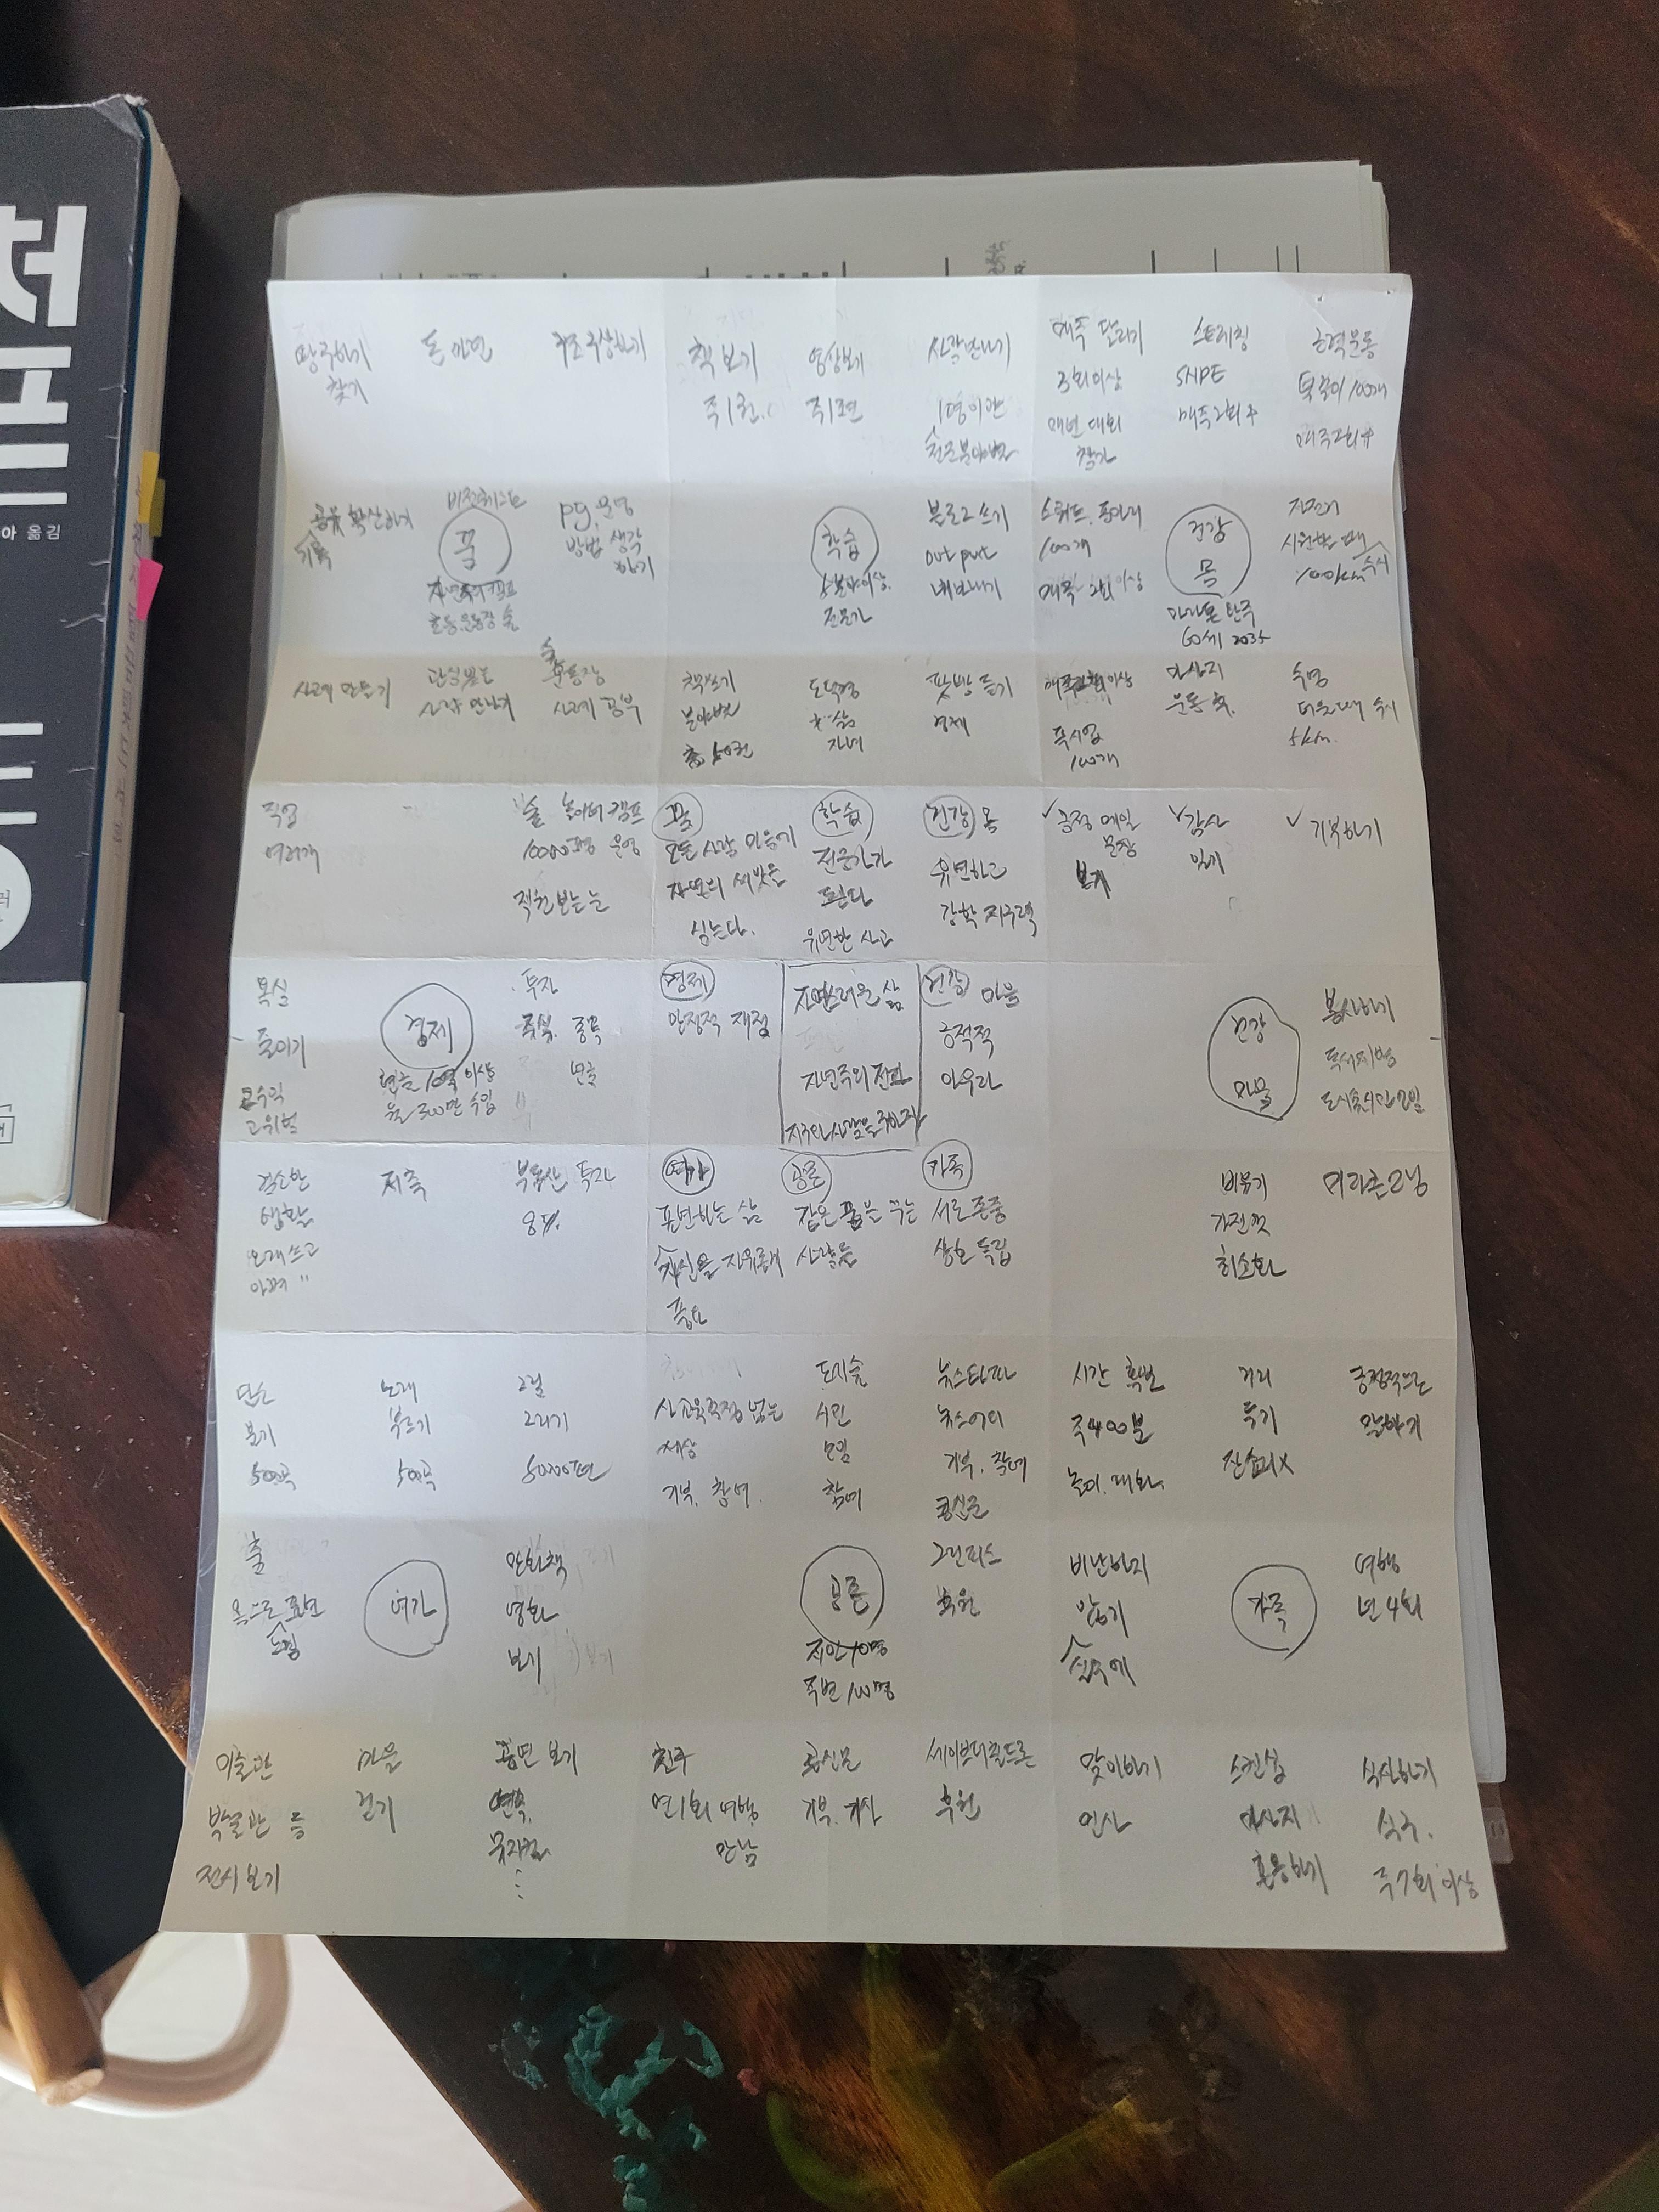 땅주하기
찾기
돈 마련
구조 구상하기
책 보기
주1권.
영상보기
주1편
사람만나기
1명이관
매주 달리기
3회이상
매번 대회
참가
스트레칭
SNPE
매주2회
근력운동
턱걸이 100개
매주2회
공유 확산하기
기록
비전퀘스트
꿈
자연주의 캠프
초등.운동장 숲
P9.운영
방법 생각
하기
학습
5분야이상.
전문가
블로그 쓰기
output
내보내기
스쿼트.
100개
매주 2회이상
건강
몸
마라톤 완주
60세 2035
자전거
시원할 때
수시
100km
사례 만들기
관심있는
사람 만나기
숲
운동장
사례 공부
책쓰기
분야별
총 50권
도덕경
삶
자녀
팟빵 듣기
경제
100개
마사지
운동 후.
수영
더울때 수시
5km
직업
여러개
숲 놀이터 캠프
10000평 운영
직원 보는 눈
꿈
모든 사람 마음에
자연의 씨앗을
심는다.
학습
전문가가
된다
유연한 사고
건강 몸
유연하고
강한 지구력
긍정 메일
문장
보기
감사
일기
기부하기
욕심
줄이기
고수익
고위험
경제
현금 10억 이상
월 300만 수입
투자
주식. 종목
연금
경제
안정적 재정
자연스러운 삶
자연주의 전파
지구와 사람을 구하자
건강 마음
긍정적
아우라
건강
마음
봉사하기
검소한
생활
오래쓰고
아껴 "
저축
부동산 투자
여가
표현하는 삶
자신을 자유롭게
풍요
공존
같은 꿈을 꾸는
사람들
가족
서로 존중
상호 독립
비우기
가진 것
최소화
미라클모닝
단소
불기
500곡
노래
부르기
500곡
그림
그리기
50000편
사교육걱정 없는
세상
기부. 참여.
도시숲
시민
모임
참여
뉴스타파
뉴스어디
기부. 참여
시간 확보
주400분
놀이. 대화.
거리
두기
잔소리X
긍정적으로
말하기
춤
몸으로 표현
여가
만화책
영화
보기
공존
지인 10명
주변 100명
그린피스
후원
비난하지
않기
가족
여행
년 4회
미술관
박물관 등
전시 보기
마을
걷기
공연 보기
연극.
뮤지컬
⋮
친구
연1회 여행.
만남
기부.
세이브더칠드론
후원
맞이하기
인사
스킨십
마사지
포옹하기
식사하기
식구.
주7회 이상
아 옮김